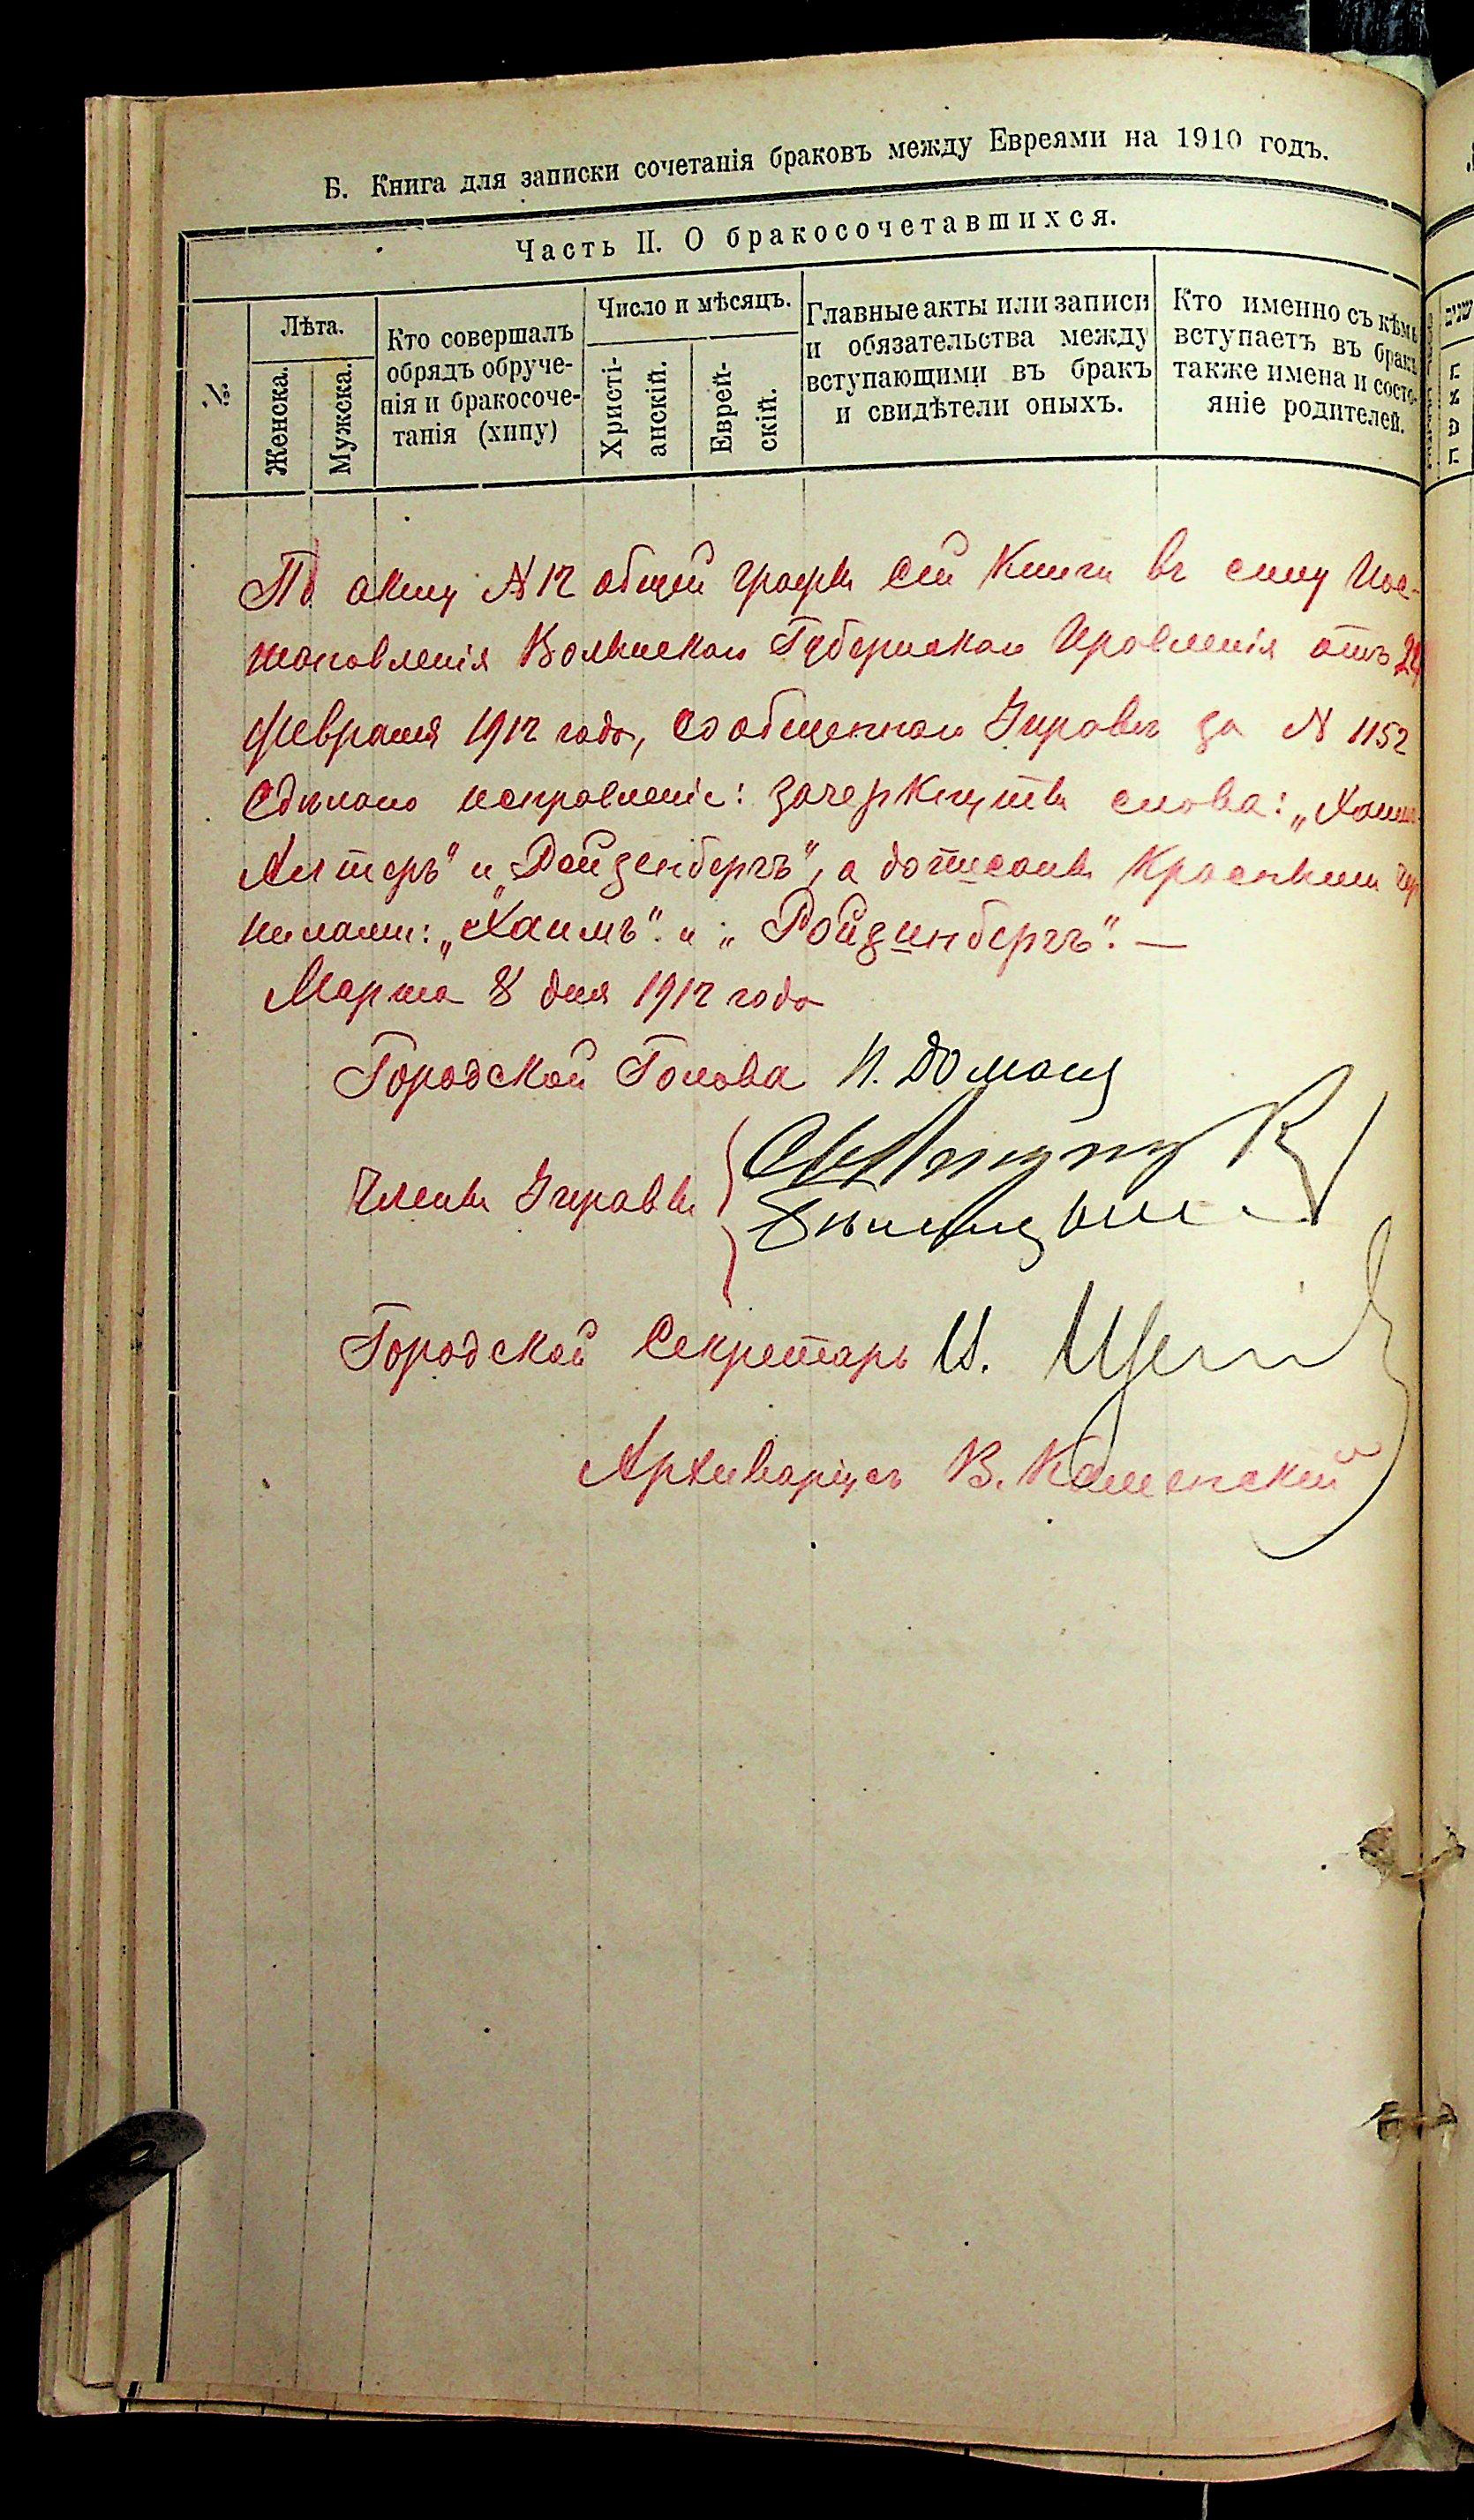 Б. Книга для записки сочетанія браковъ между Евреями на 1910 годъ.
Часть II. О бракосочетавшихся.
№
Лѣта.
Женска.
Мужска.
Кто совершалъ
обрядъ обруче-
нія и бракосоче-
танія (хипу)
Число и мѣсяцъ.
Христі-
анскій.
Еврей-
скій.
Главные акты или записи
и обязательства между
вступающими въ бракъ
и свидѣтели оныхъ.
Кто именно съ кѣмъ
вступаетъ въ бракъ
также имена и состо-
яніе родителей.
По акту № 12 общей графы сей Книги въ силу Пос-
тановленія Волынскаго Губернскаго Правленія отъ
февраля 1912 года, сообщеннаго Управѣ за № 1152
сдѣлано исправленіе: зачеркнуты слова: „Хаимъ
Алтеръ" и „Войзенбергъ", а дописаны красными чер
нилами: „Хаимъ" и „Ройзинбергъ". —
Марта 8 дня 1912 года
Городской Голова
Члены Управы
Городской Секретарь И.
Архиваріусъ В. Каменскій